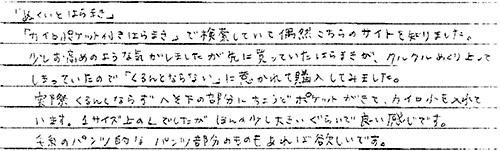 「ぬくいとはらまき」
「カイロポケット付きはらまき」で検索していて偶然こちらのサイトを知りました。
少しお高めのような気がしましたが先に買っていたはらまきが、クルクルめくり上って
しまっていたので「くるんとならない」に惹かれて購入してみました。
実際くるんとならずへその下の部分にちょうどポケットがきて、カイロ小も入れて
います。1サイズ上のLでしたがほんの少し大きいぐらいで良い感じです。
毛糸のパンツ的なパンツ部分のものもあれば欲しいです。